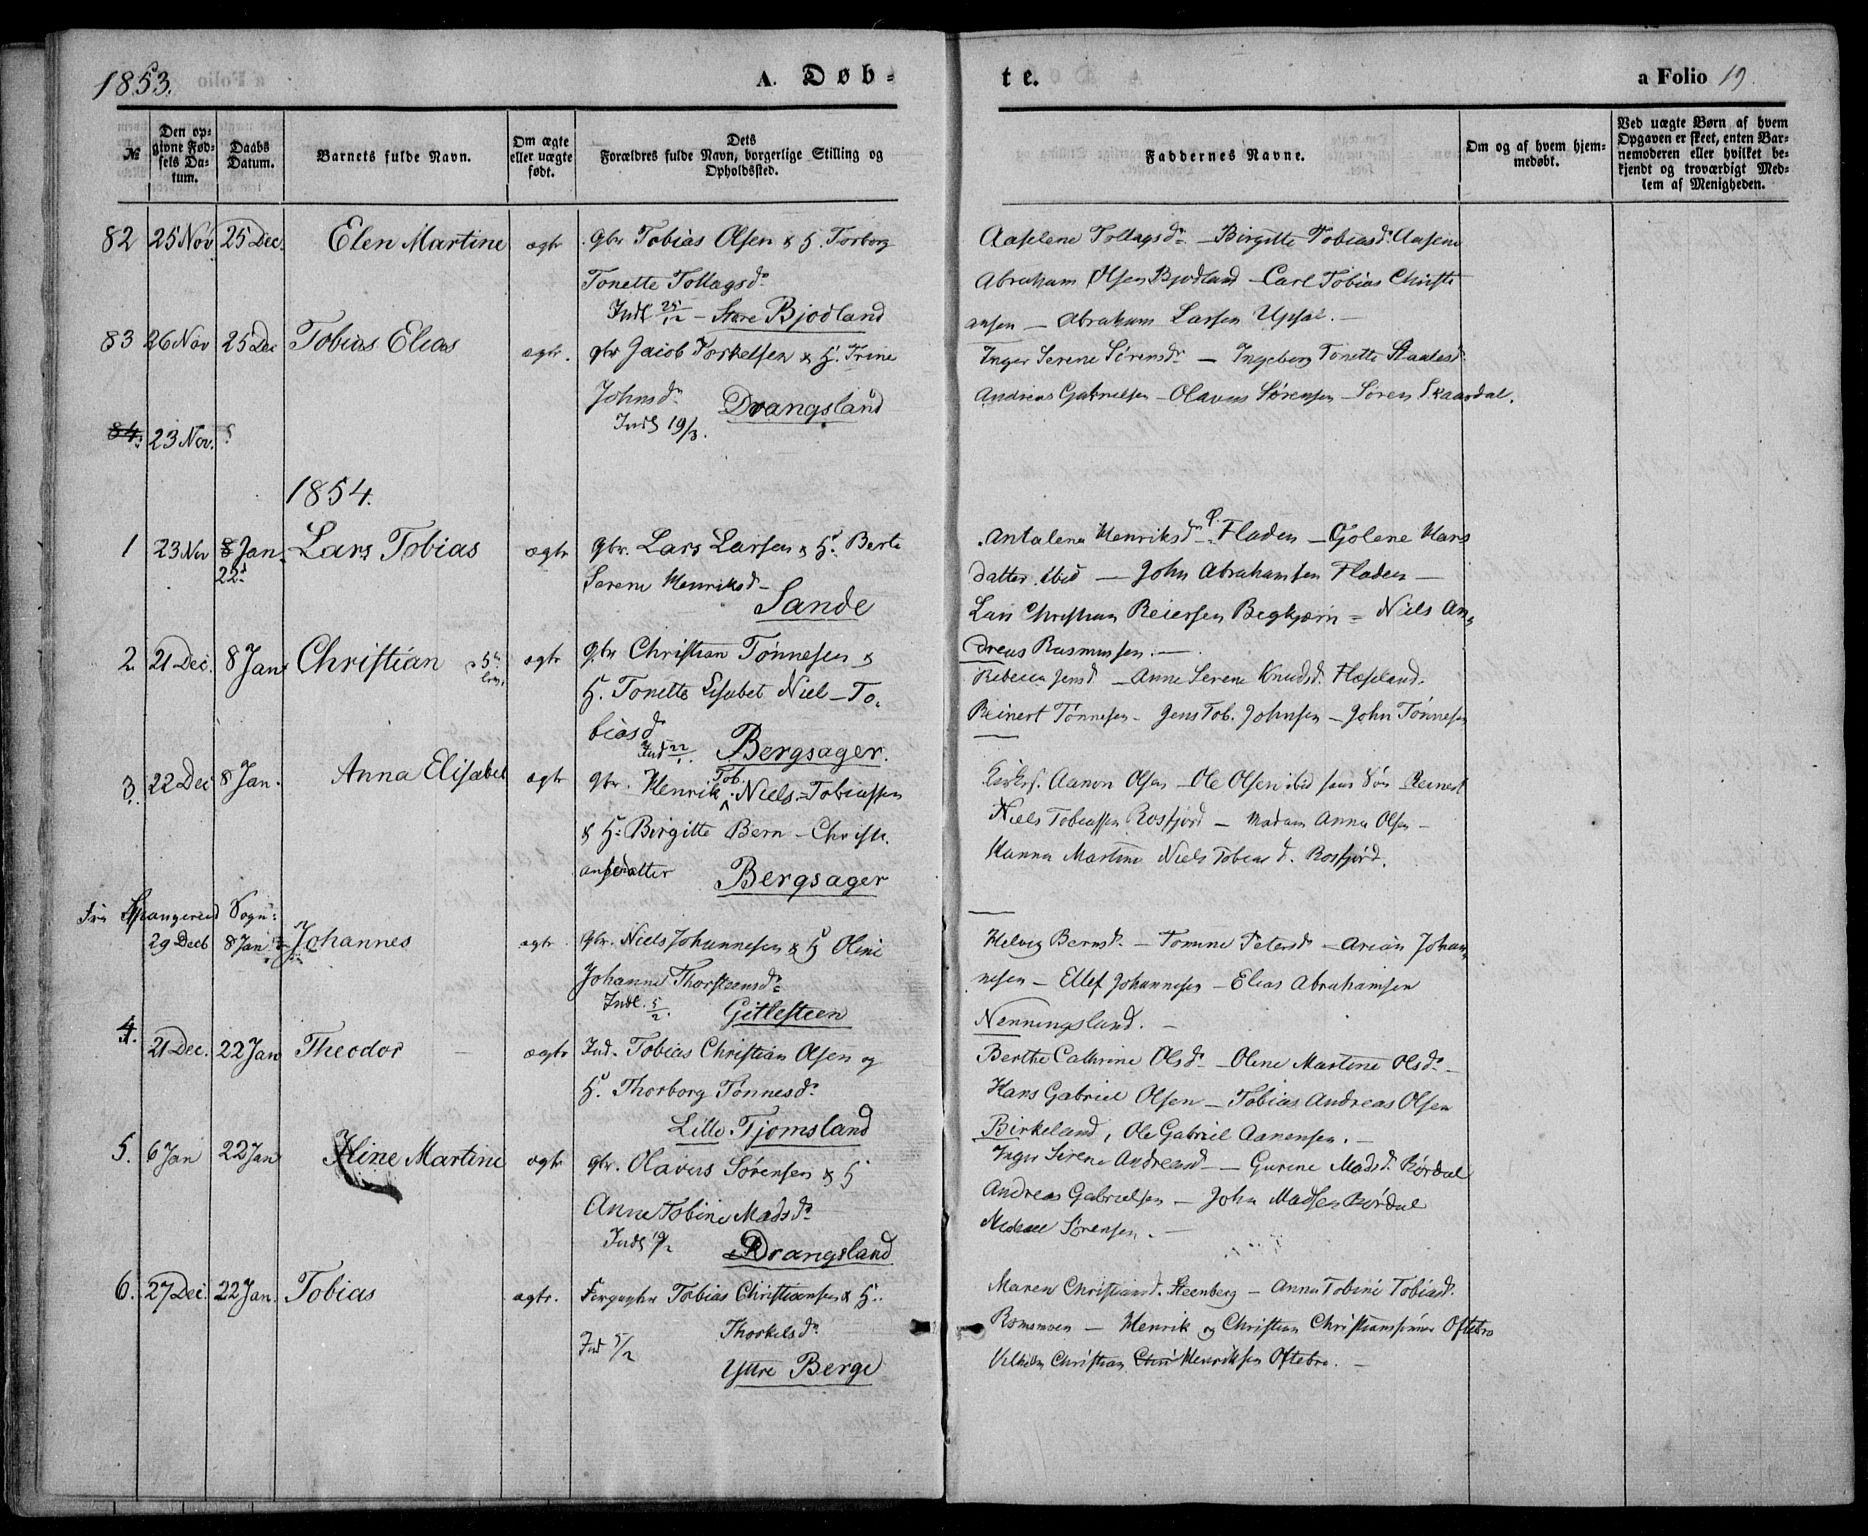 1853.
A. Døb-
te.
a Folio 19.
№
Den opgivne Fødsels Datum.
Daabs Datum.
Barnets fulde Navn.
Om ægte eller uægte født.
Dets Forældres fulde Navn, borgerlige Stilling og Opholdssted.
Faddernes Navne.
Om og af hvem hjemmedøbt.
Ved uægte Børn af hvem Opgaven er skeet, enten Barnemoderen eller hvilket bekjendt og troværdigt Medlem af Menigheden.
82 25 Nov 25 Dec. Elen Martine ægtr Gbr Tobias Olsen & H. Torborg
Tonette Tollagsdr
Indl 25/12 - Store Bjodland
Aaselene Tollagsdr - Birgitte Tobiasdr
Abraham Olsen Bjodland - Carl Tobias Christi
ansen - Abraham Larsen Upsal. -
83 26 Nov 25 Dec Tobias Elias ægtr. gbr Jacob Torkelsen & H. Trine
Johnsdr Drangsland
Indl 19/3.
Inger Serene Sørensdr - Ingeborg Tonette
Andreas Gabrielsen - Olavus Sørensen - Søren Skaardal.
84. 23 Nov.
1854.
1 23 Nov 8 Jan. 22d Lars Tobias ægtr Gbr. Lars Larsen & H. Berte
Serene Henriksd
Sande
Antalena Henriksdr Fladen - Golene Hans
datter ibid - John Abrahamsen Fladen -
Lars Christian Reiersen Begkjærn = Niels An=
dreas Rasmussen. -
2. 21 Dec. 8 Jan. Christian ægtr gbr Christian Tønnesen &
H. Tonette Elisabet Niel-To-
biasd
Indl 22/1. Bergsager.
Rebecca Jensd - Anne Serene Knudsd. Høseland.
Reinert Tønnesen - Jens Tob. Johnsen - John Tønnesen
3. 22 Dec 8 Jan. Anna Elisabet ægtr gbr. Henrik Tob. Niels-Tobiassen
& H. Birgitte Bern-Christi-
ansdatter Bergsager
Kirks. Aanon Olsen - Ole Olsen ibid hans Søn Reinert
Niels Tobiassen Rosfjord - Madam Anna Olsen -
Hanna Martine Niels Tobias d. Rosfjord.
Fra Spangereid Sogn:
29 Decb 8 Jan Johannes ægtr. Gbr. Niels Johannesen & H Olini
Johanne Thorsteensdr
Indl. 5/2. Gitlesteen
Helvig Bernsdr - Tomine Petersdr - Arian Johan
nesen - Ellef Johannesen - Elias Abrahamsen
Nenningsland. -
4. 21 Dec. 22 Jan Theodor ægtr Ind. Tobias Christian Olsen og
H. Thorborg Tønnesdr
Lille Tjomsland
Berthe Cathrine Olsdr - Olene Martine Olsdr -
Hans Gabriel Olsen - Tobias Andreas Olsen
Birkeland, Ole Gabriel Aanensen. -
5. 6 Jan 22 Jan Hine Martine ægtr gbr. Olavus Sørensen & H
Anne Tobine Madsdr
Indl 19/2 Drangsland
Inger Serene Andreasd - Gurine Madsdr Rørdal
Andreas Gabrielsen - John Madsen Rørdal
Mikael Sørensen. -
6. 27 Dec. 22 Jan. Tobias ægtr. Tobias Christiansen & H.
Thorkelsdr
Ind 5/2
Yttre Berge
Maren Christiansd. Steenberg - Anna Tobini Tobiasd.
Romsmoen - Henrik og Christian Christianssønner Oftebro
Vilhelm Christian Henriksen Oftebro. -